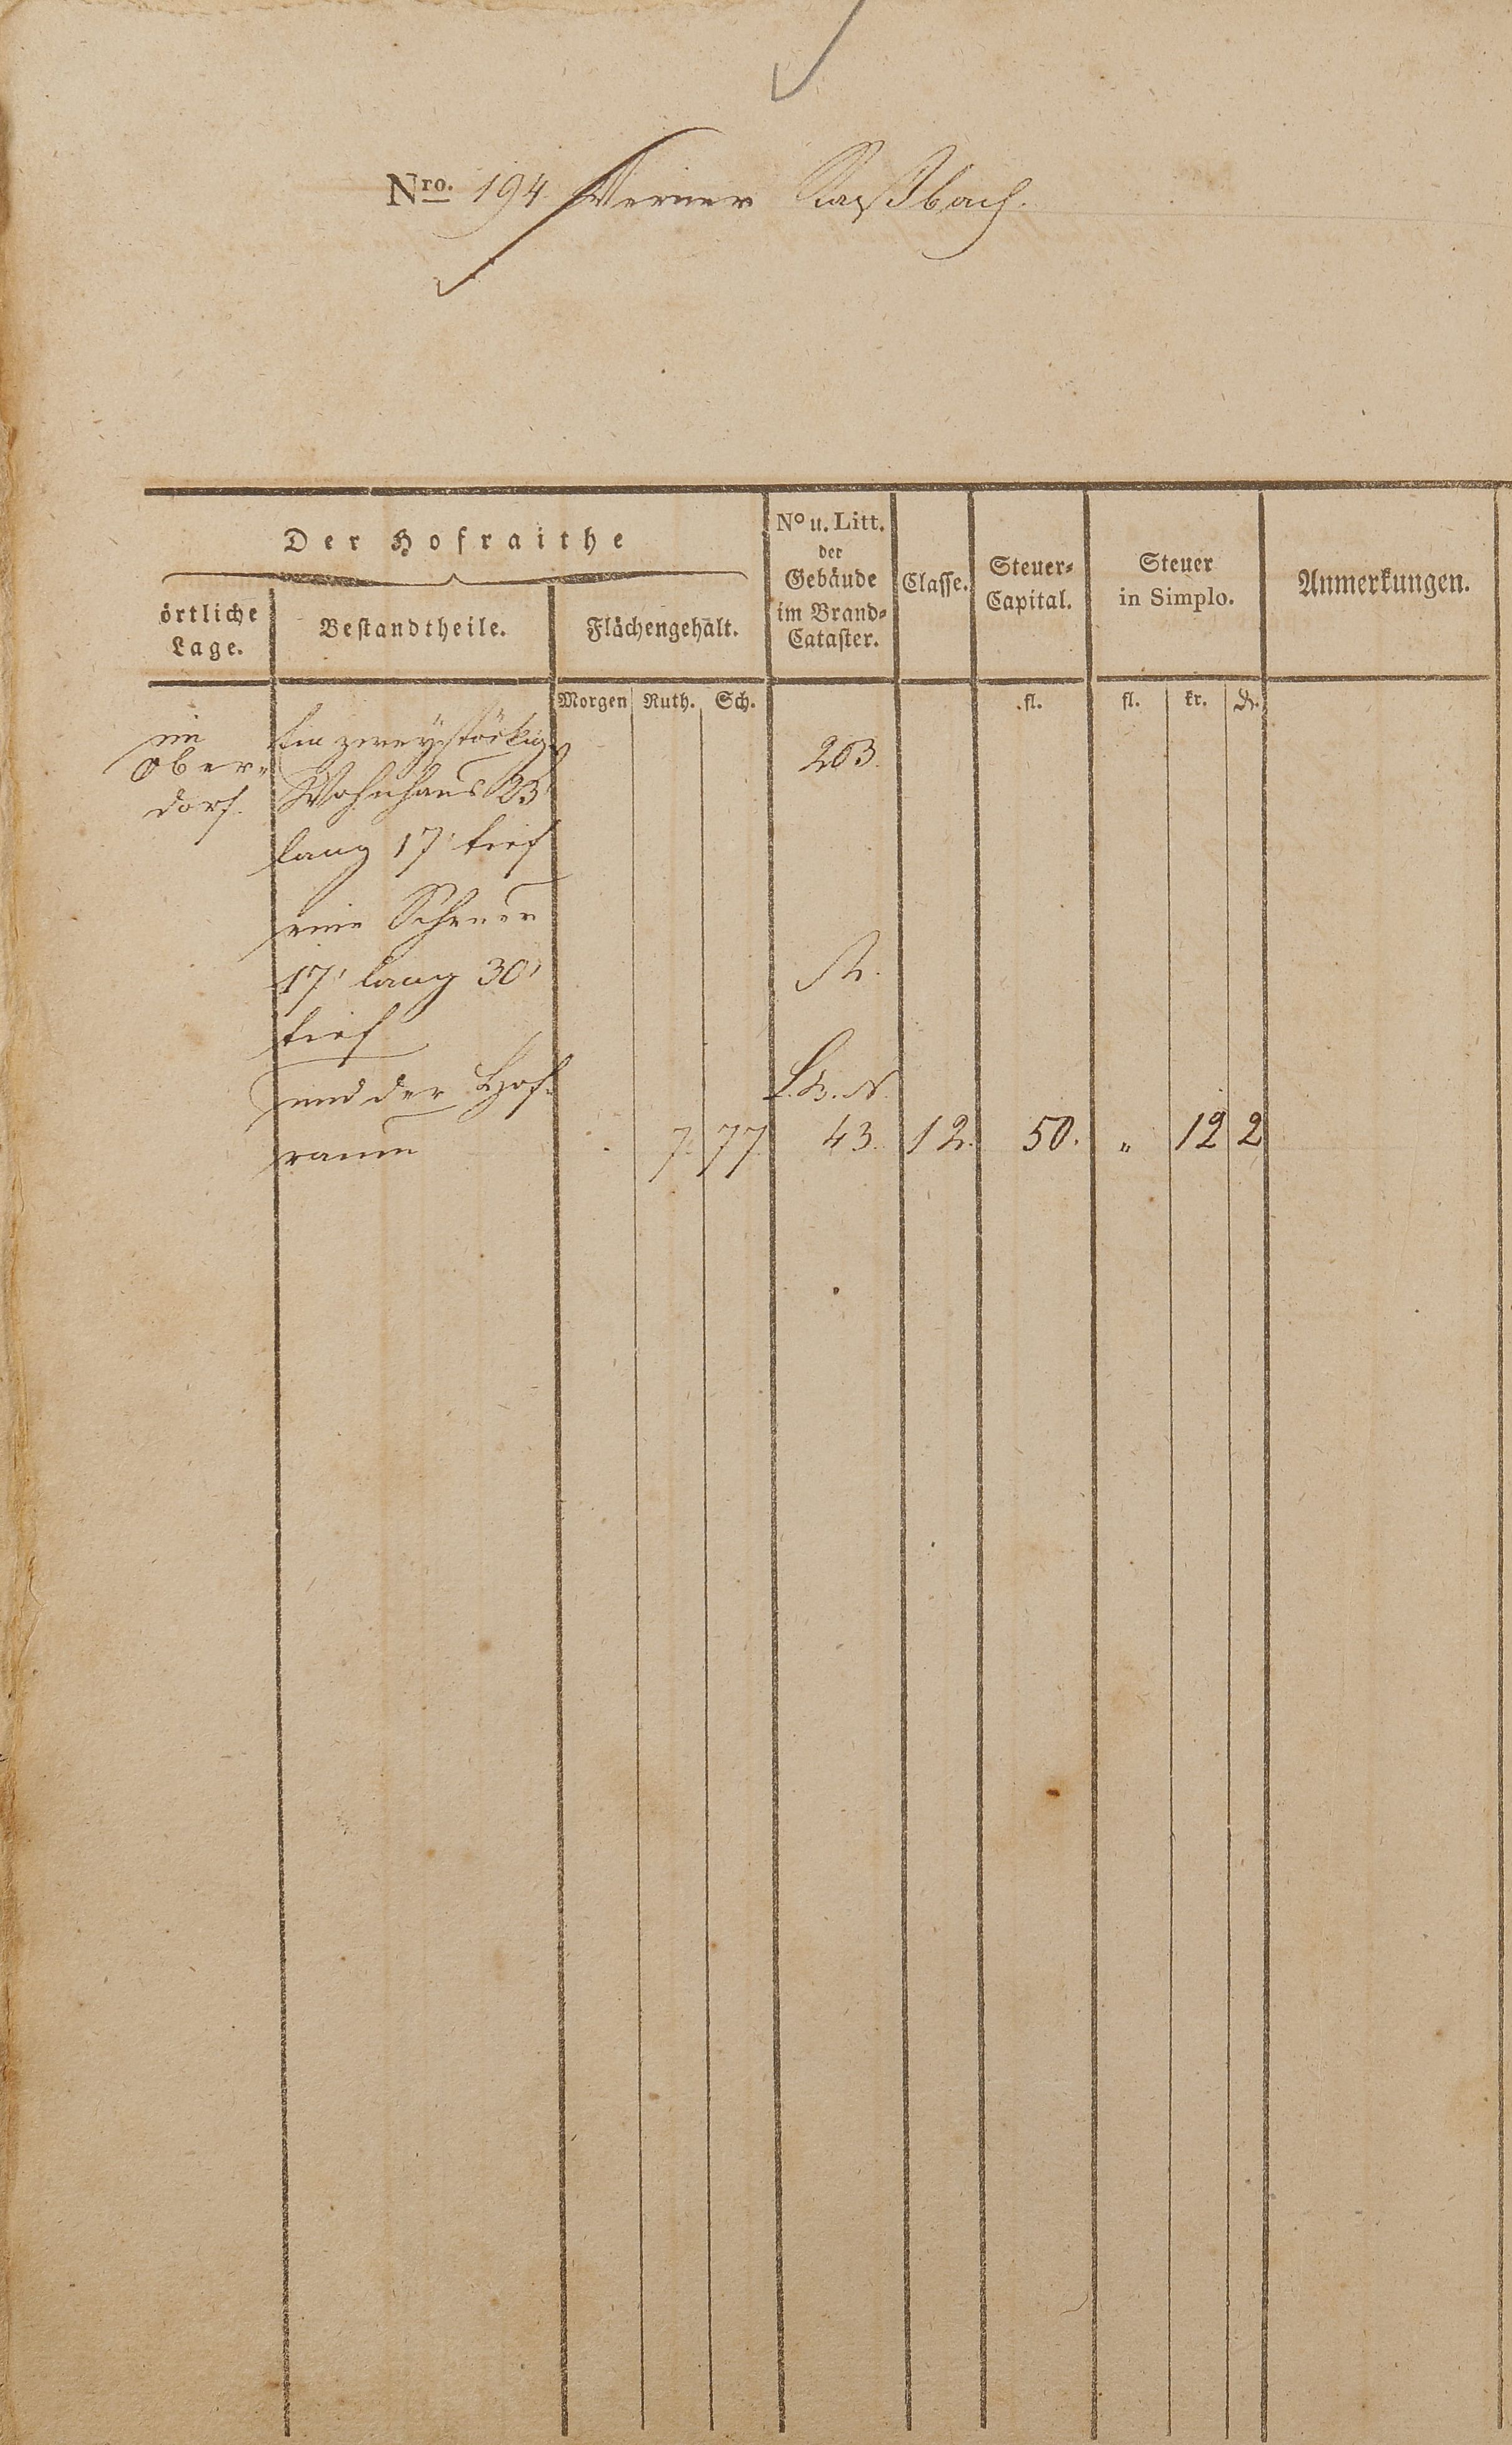 Nro. 194 Werner Raßbach.
Der Hofraithe
örtliche Lage.
Bestandtheile.
Flächengehalt.
No u. Litt. der Gebäude im Brand-Cataster.
Classe.
Steuer-Capital.
Steuer in Simplo.
Anmerkungen.
Morgen Ruth. Sch. fl. fl. kr. d.
im
Ober-
dorf.
Ein zweystöckig
203.
Wohnhaus 23'
lang 17' tief
eine Scheuer
17' lang 30'
tief
und der Hof-
raum
7. 77. 43. 12. 50. " 12 2